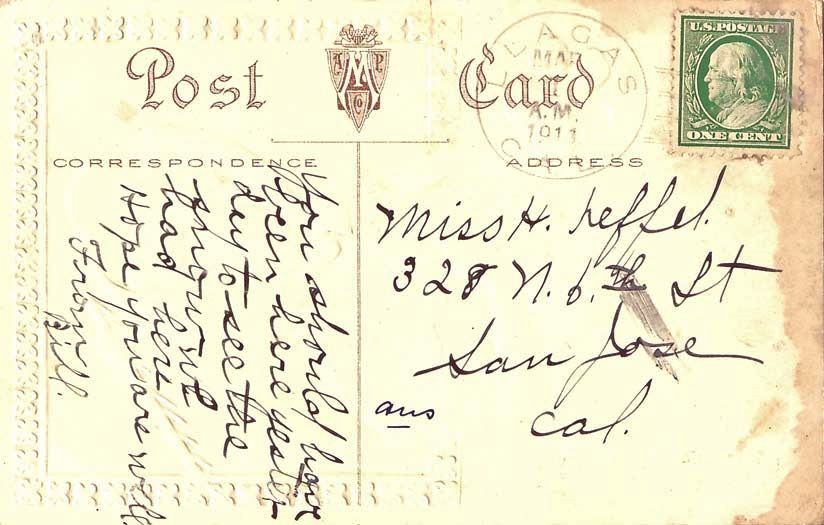 Post Card
A M P
CO
LLAGAS
MAR
A.M.
1911
CAL
U.S. POSTAGE
ONE CENT
CORRESPONDENCE
ADDRESS
You should have
been here yester-
day to see the
snow we
had here
Hope you are well
From
Bill.
Miss H. Keffel.
328 N. 6.th St
San Jose
Cal.
ans